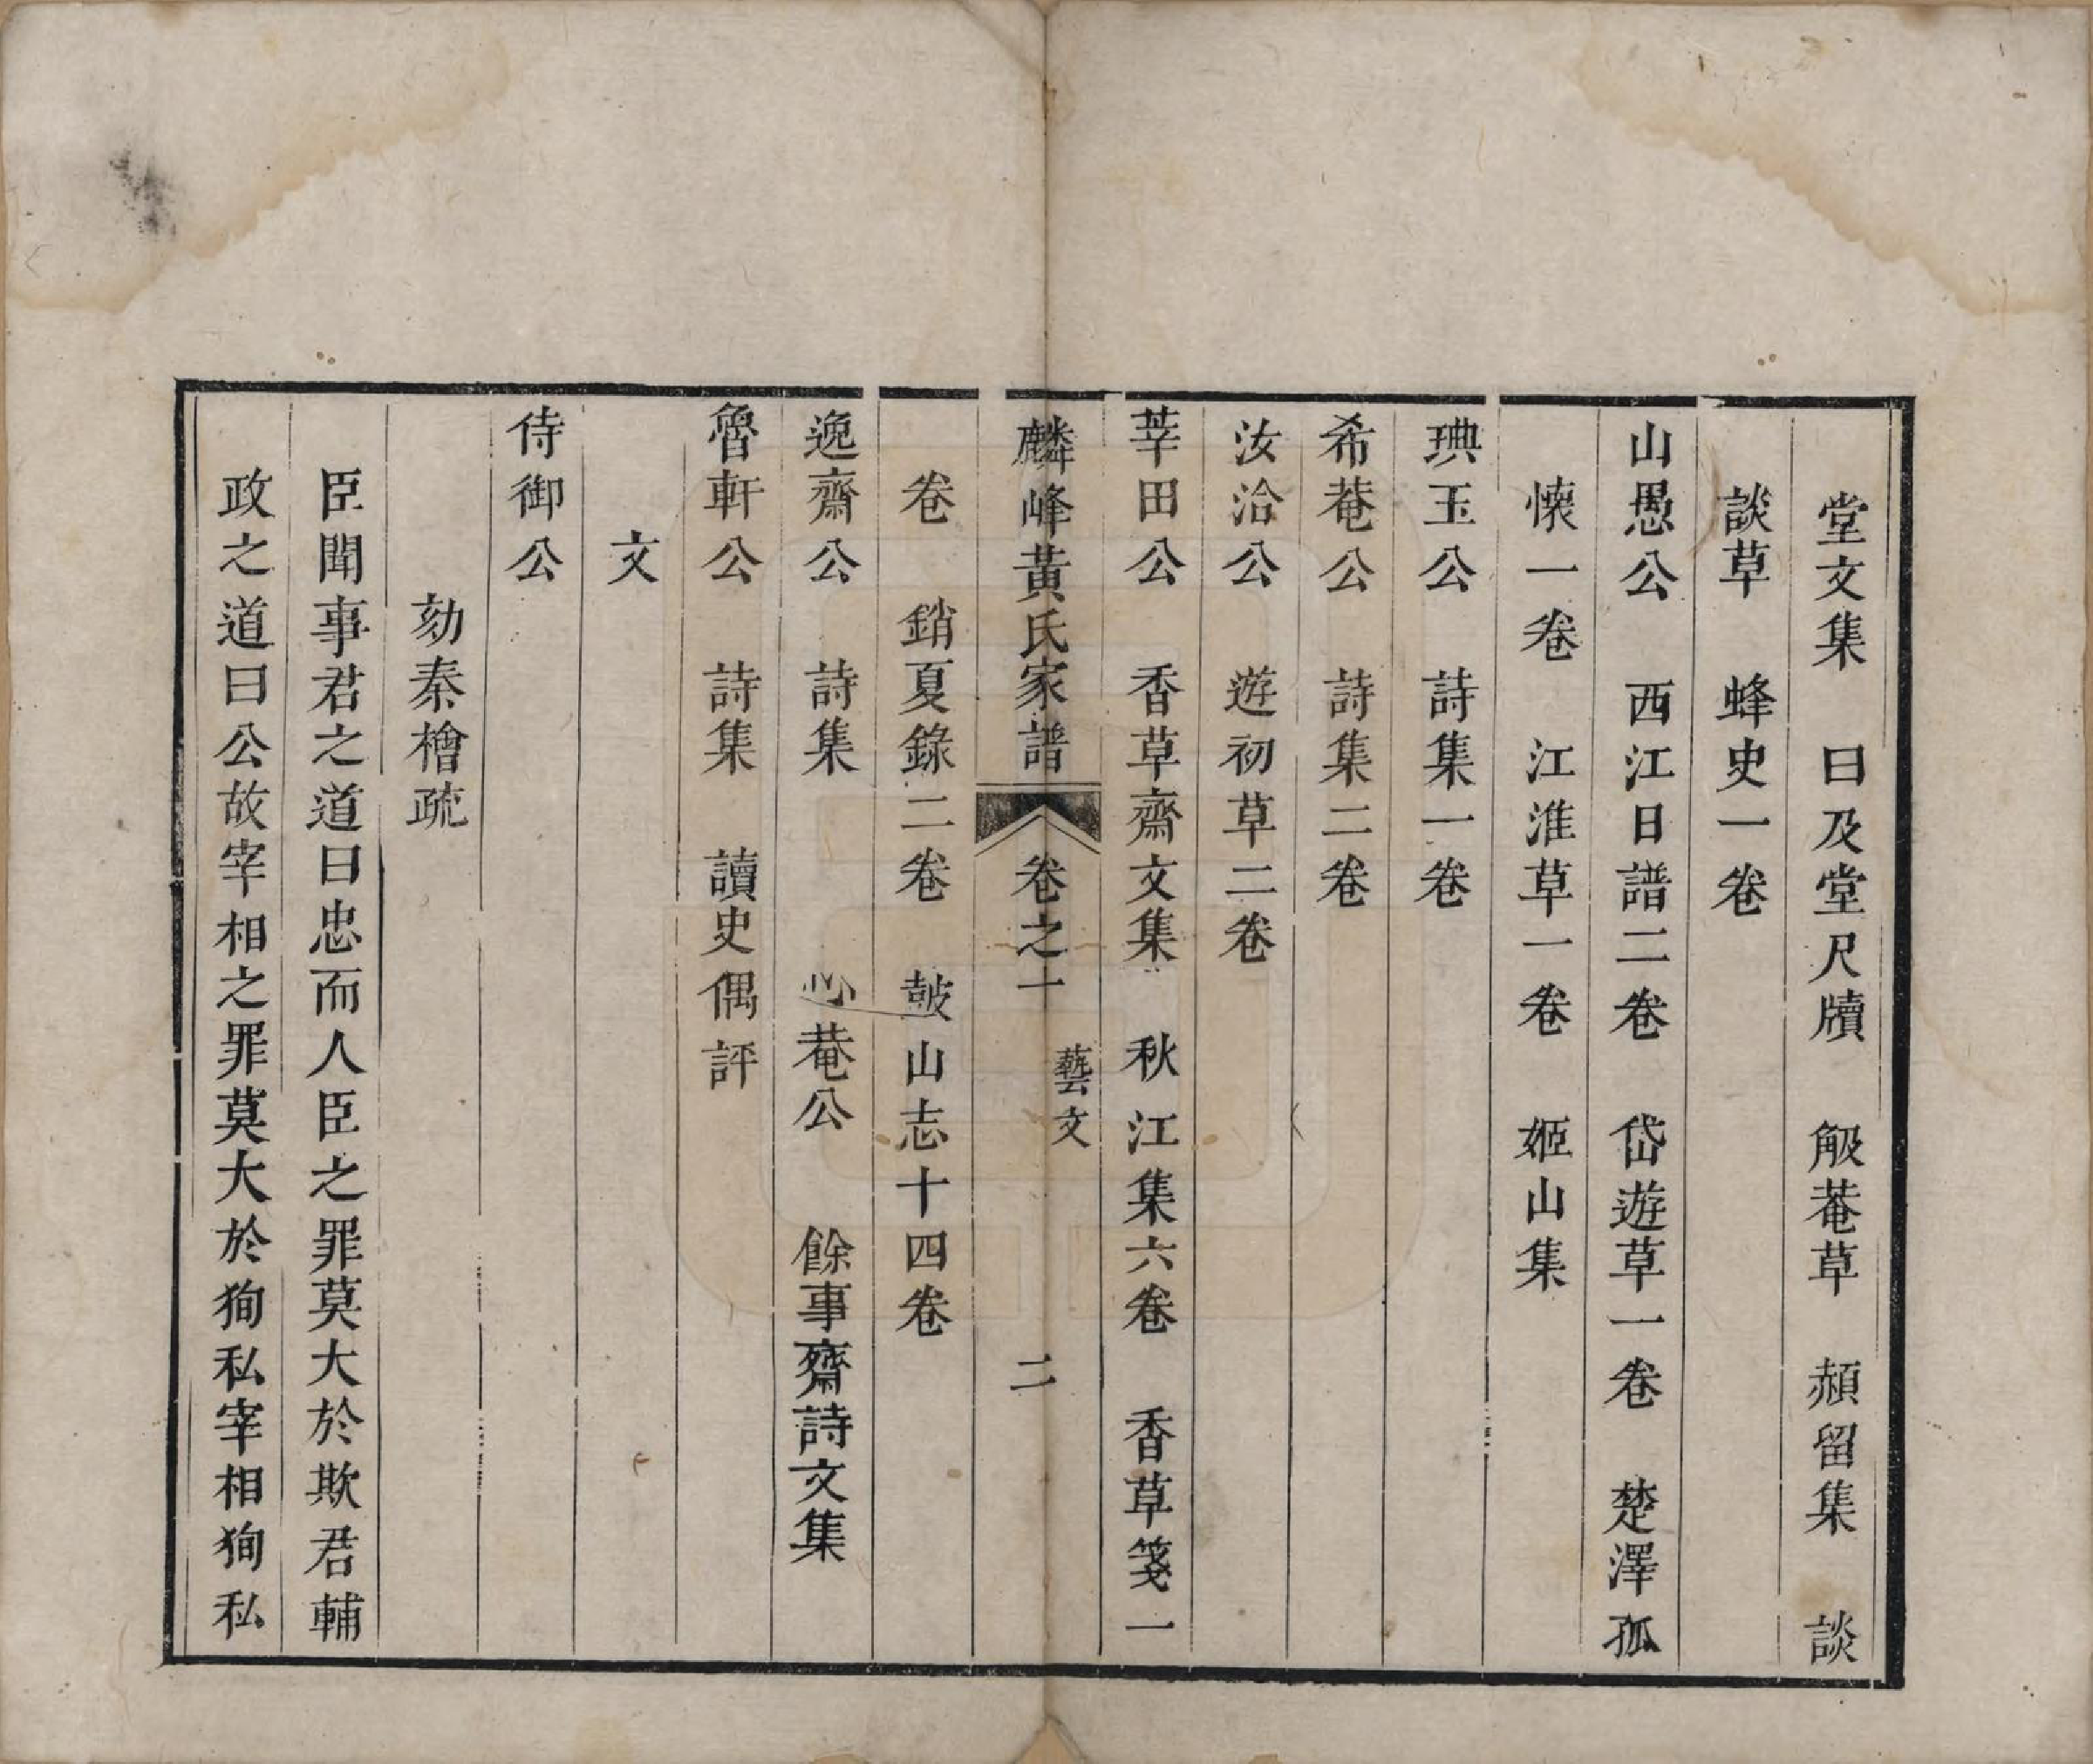 堂文集　曰及堂尺牘　觙菴草　頳留集　談
談草　蜂史一卷
山愚公　西江日譜二卷　岱遊草一卷　楚澤孤
懷一卷　江淮草一卷　姬山集
琠玉公　詩集一卷
希菴公　詩集二卷
汝洽公　遊初草二卷
莘田公　香草齋文集　秋江集六卷　香草箋一
麟峰黃氏家譜　卷之一　藝文　二
卷　銷夏錄二卷　皷山志十四卷
逸齋公　詩集　心菴公　餘事齋詩文集
魯軒公　詩集　讀史偶評
文
侍御公
劾秦檜疏
臣聞事君之道曰忠而人臣之罪莫大於欺君輔
政之道曰公故宰相之罪莫大於狥私宰相狥私